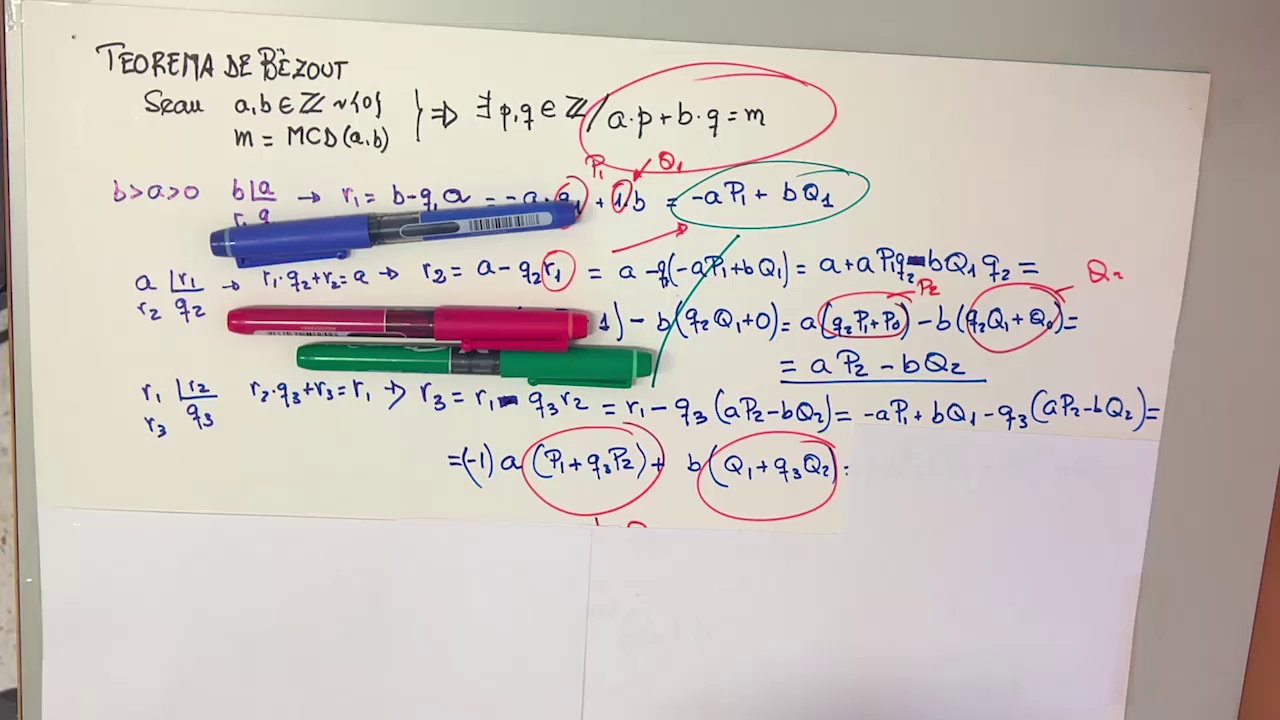 TEOREMA DE BÉZOUT
Sean a,b ∈ ℤ ~ {0} } ⇒ ∃ p,q ∈ ℤ / a·p + b·q = m
m = MCD(a,b)
P₁ Q₁
b > a > 0 b | a → r₁ = b - q₁a = -a · q₁ + 1·b = -aP₁ + bQ₁
r₁ q
a | r₁ → r₁·q₂ + r₂ = a → r₂ = a - q₂r₁ = a - q₂(-aP₁ + bQ₁) = a + aP₁q₂ - bQ₁q₂ =
r₂ q₂
P₂ Q₂
1) - b(q₂Q₁ + 0) = a(q₂P₁ + P₀) - b(q₂Q₁ + Q₀) =
= aP₂ - bQ₂
r₁ | r₂ r₂·q₃ + r₃ = r₁ → r₃ = r₁ - q₃r₂ = r₁ - q₃(aP₂ - bQ₂) = -aP₁ + bQ₁ - q₃(aP₂ - bQ₂) =
r₃ q₃
= (-1) a (P₁ + q₃P₂) + b (Q₁ + q₃Q₂) =